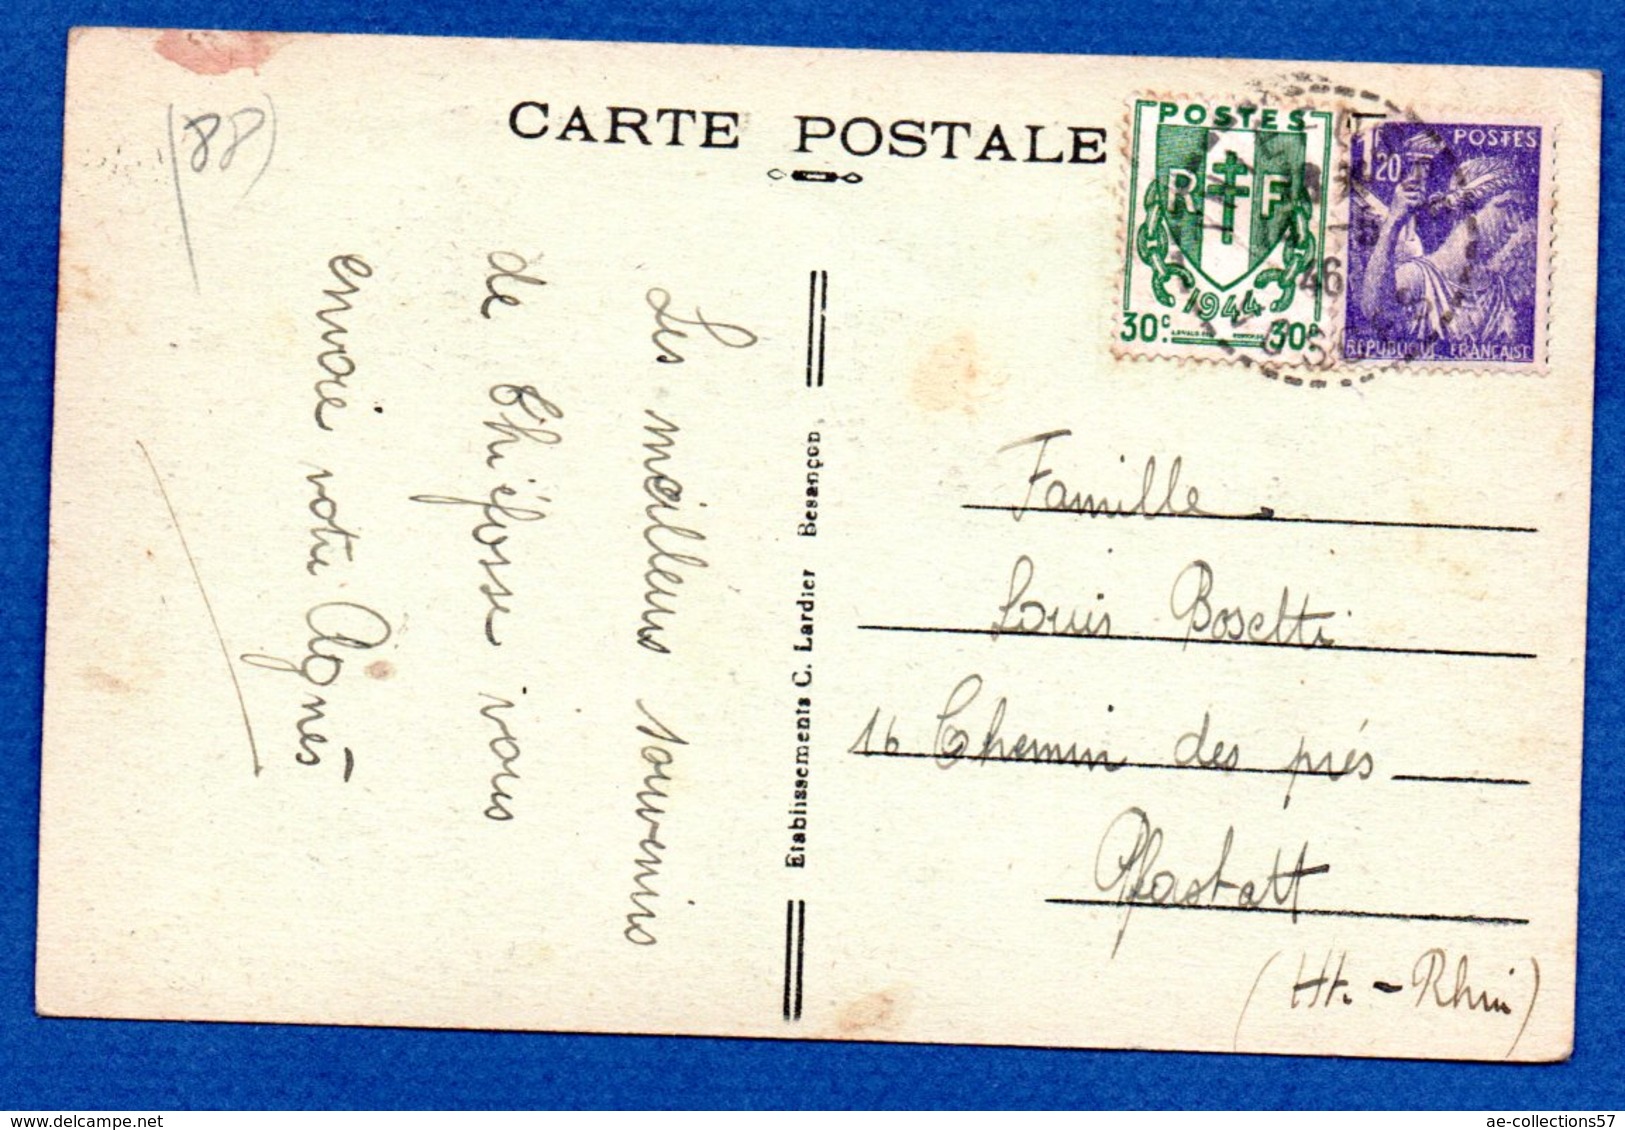 (88)
CARTE POSTALE
POSTES
R F
1944
30c. 30c.
1,20 POSTES
REPUBLIQUE FRANÇAISE
-5
46
Les meilleurs souvenirs
de Thiéfosse vous
envoie votre Agnès
Etablissements C. Lardier Besançon
Famille
Louis Bosetti
16 Chemin des prés
Pfastatt
(Ht. - Rhin)
ae-collections57